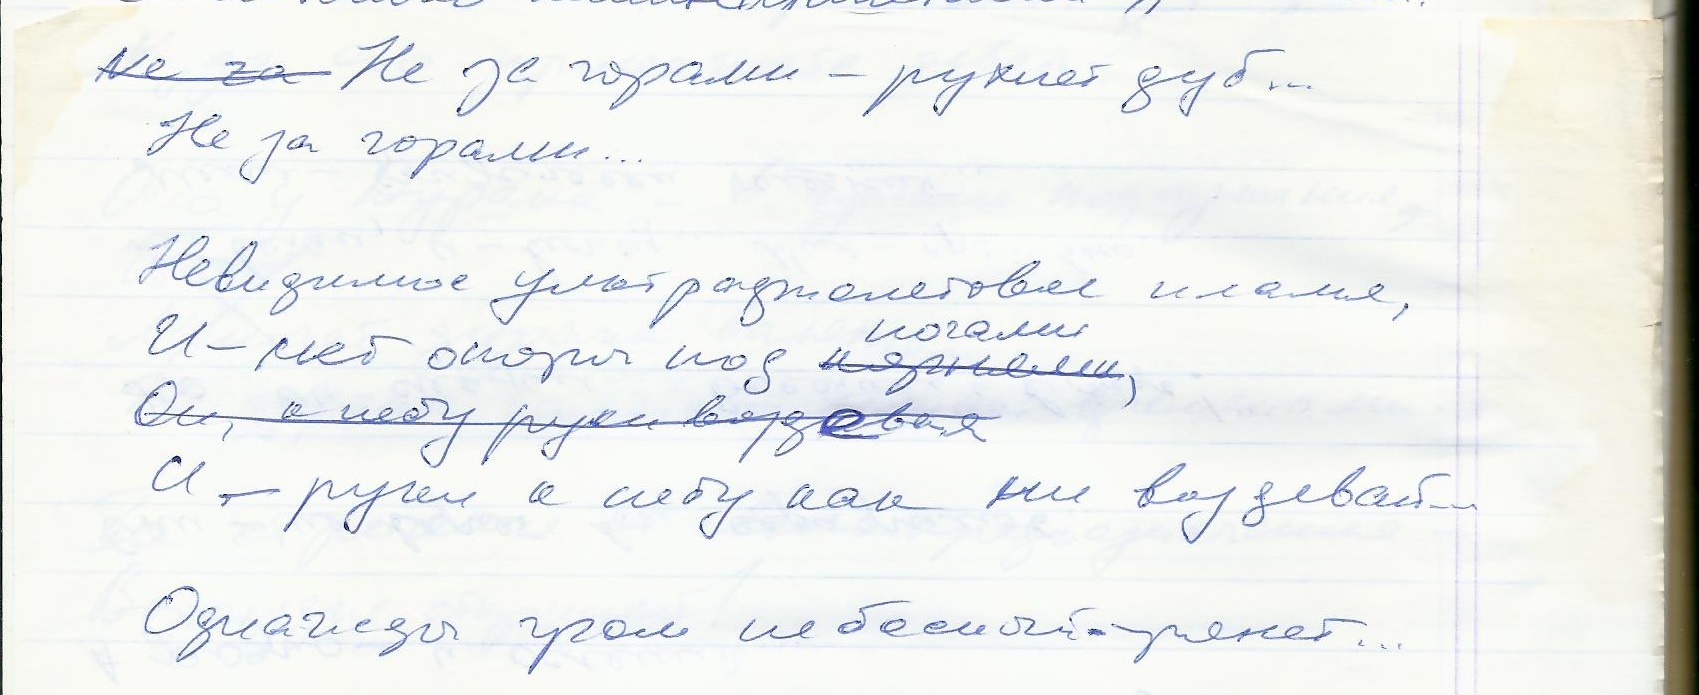 Не за Не за горами – рухнет дуб...
Не за горами...
Невидимое ультрафиолетовое пламя,
И – нет опоры под ногами
корнями,
Он, к небу руки воздевая
И – руки к небу как ни воздевай...
Однажды гром небесный – грянет...